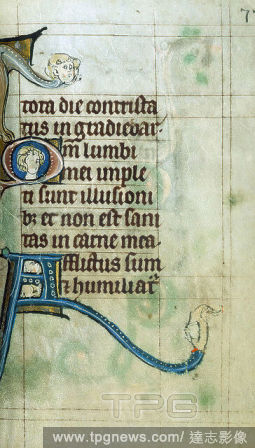 7
tota die contrista
tus in gradiebar.
Qm lumbi
mei imple
ti sunt illusioni
b: et non est sani
tas in carne mea.
Afflictus sum
et humiliat
TPG
www.tpgnews.com/達志影像